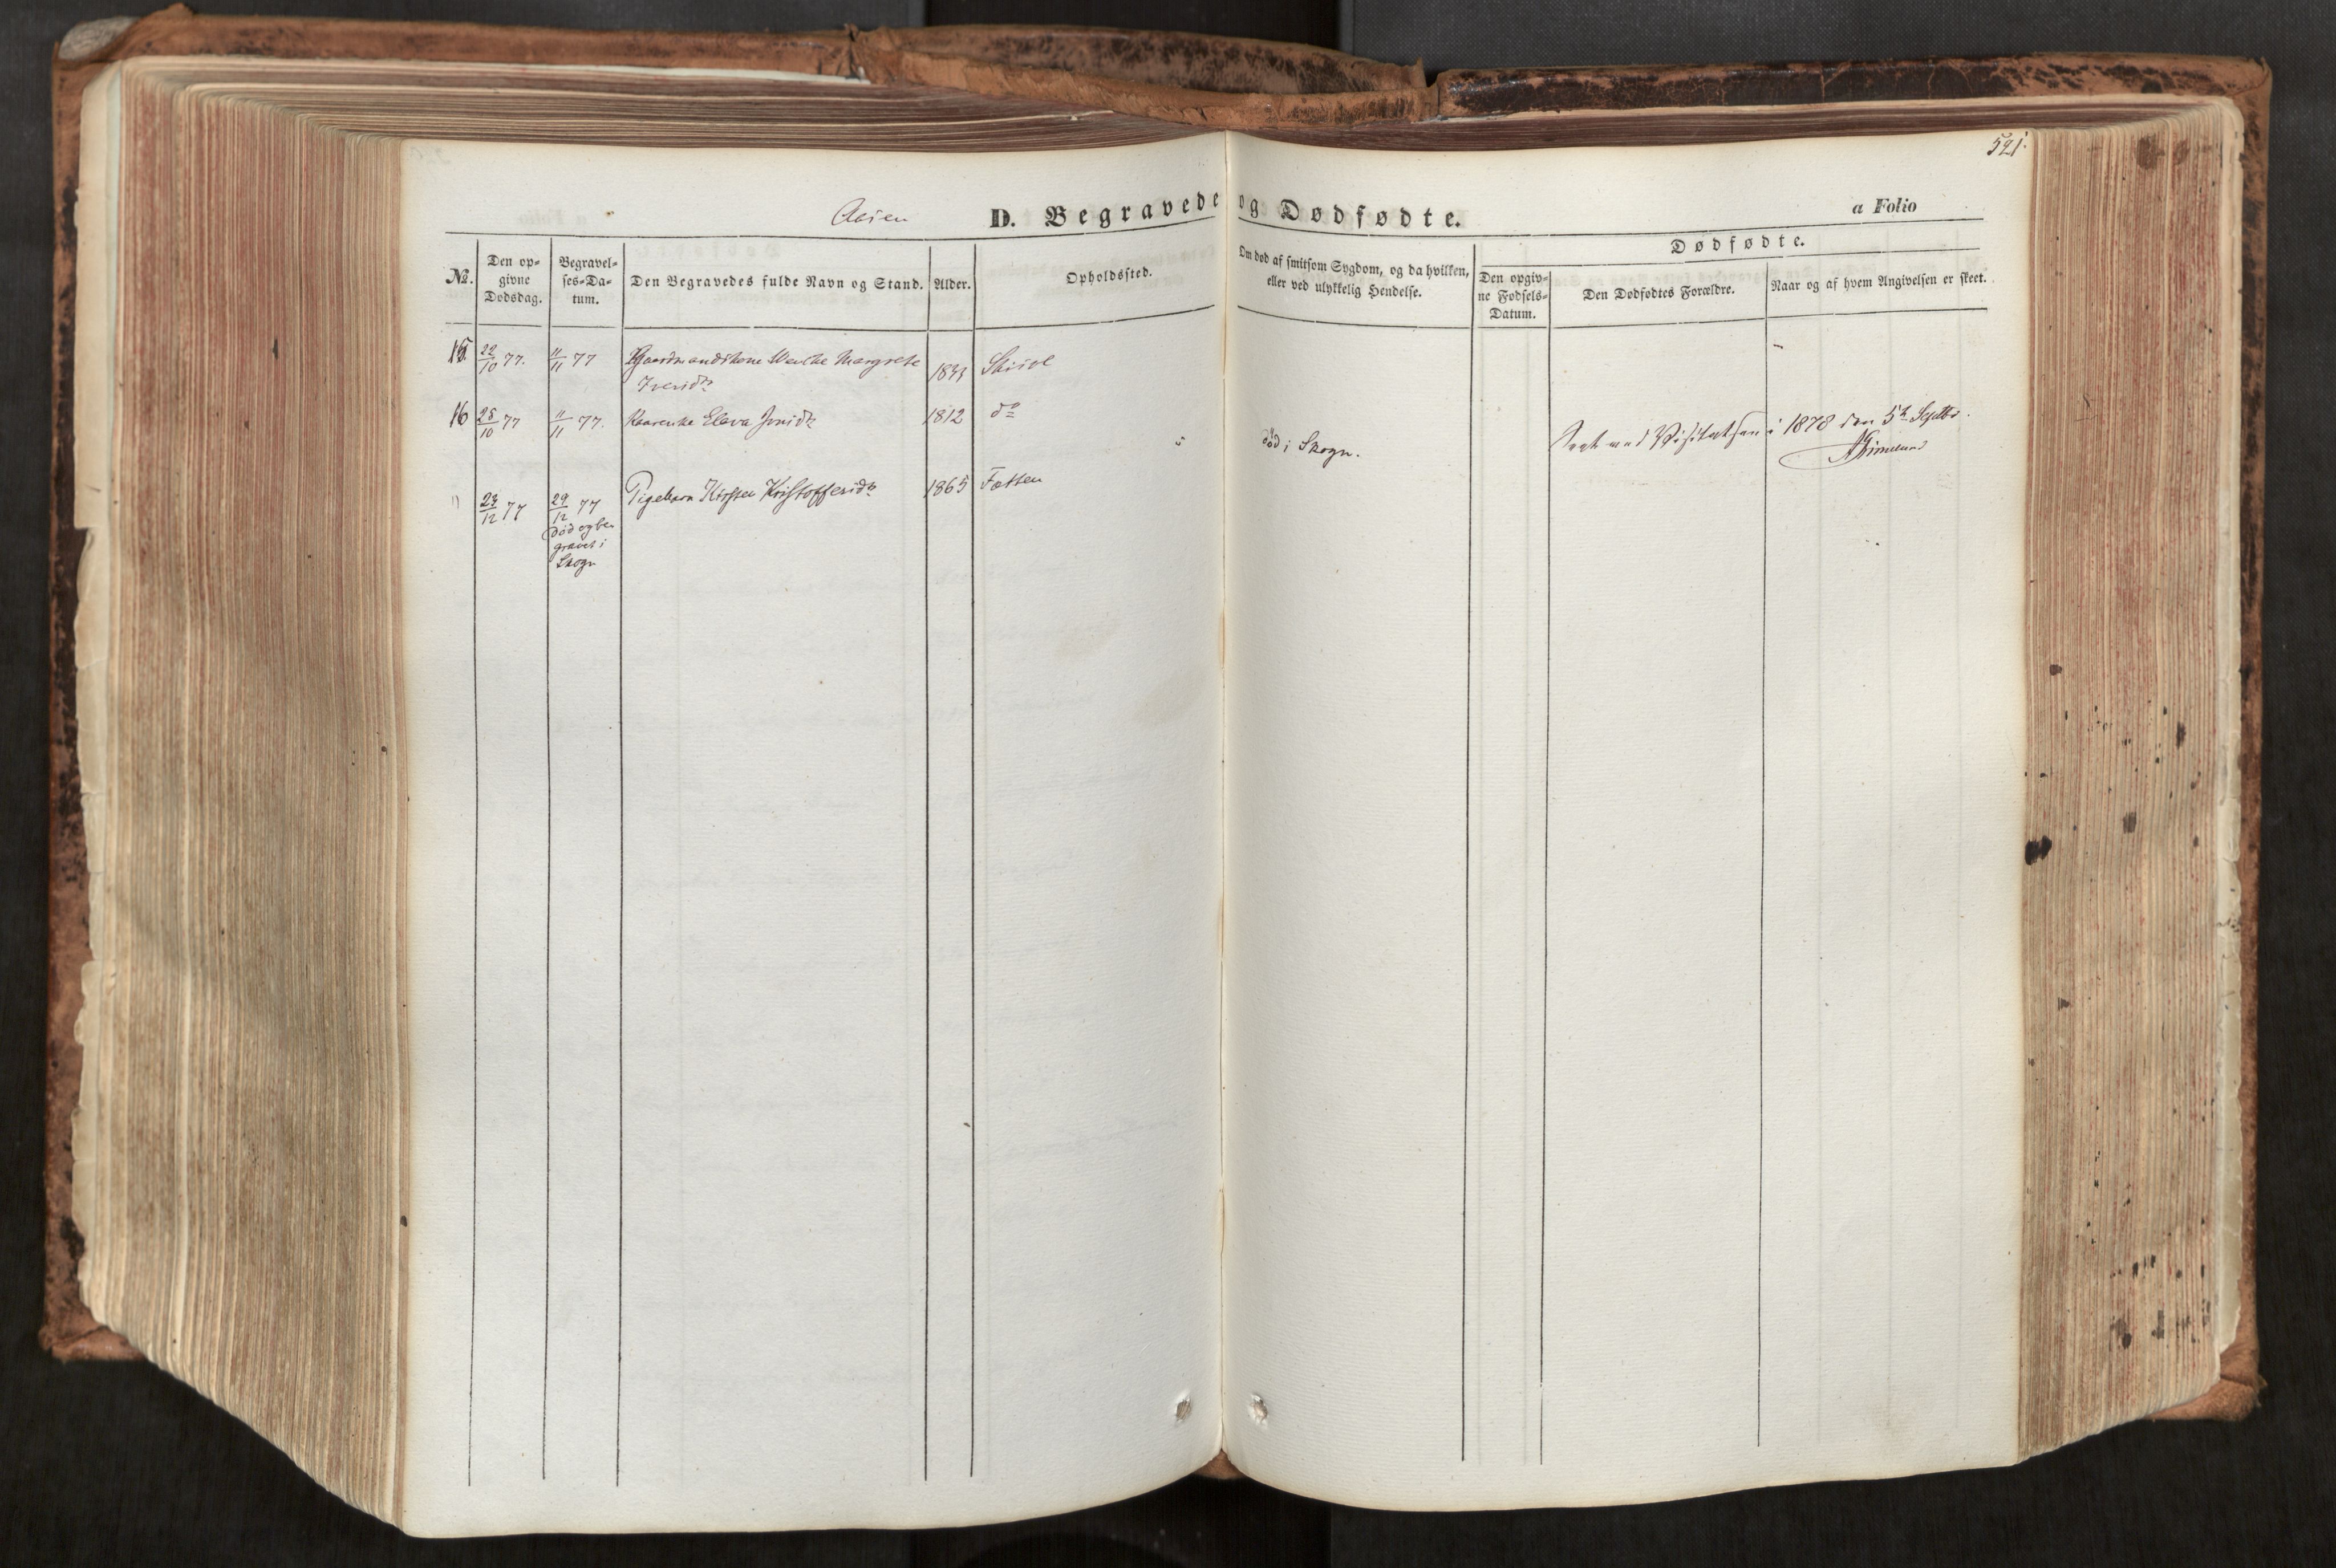 521.
Aasen D. Begravede og Dødfødte. a Folio
Dødfødte.
No. Den opgivne Dødsdag. Begravelses-Datum. Den Begravedes fulde Navn og Stand. Alder. Opholdssted. Om død af smitsom Sygdom, og da hvilken, eller ved ulykkelig Hendelse. Den opgivne Fødsels-Datum. Den Dødfødtes Forældre. Naar og af hvem Angivelsen er skeet.
15 22/10 77. 11/11 77 Gaardmandskone Margrete
Iversdr
16 25/10 77 11/11 77. Elava 1812 do
død i Skogn.
Seet ved Visitatsen i 1878 den 5te Septbr.
" 23/12 77 29/12 77 Pigebarn Kirsten Kristoffersdr 1865 Fætten
død og be-
gravet i
Skogn